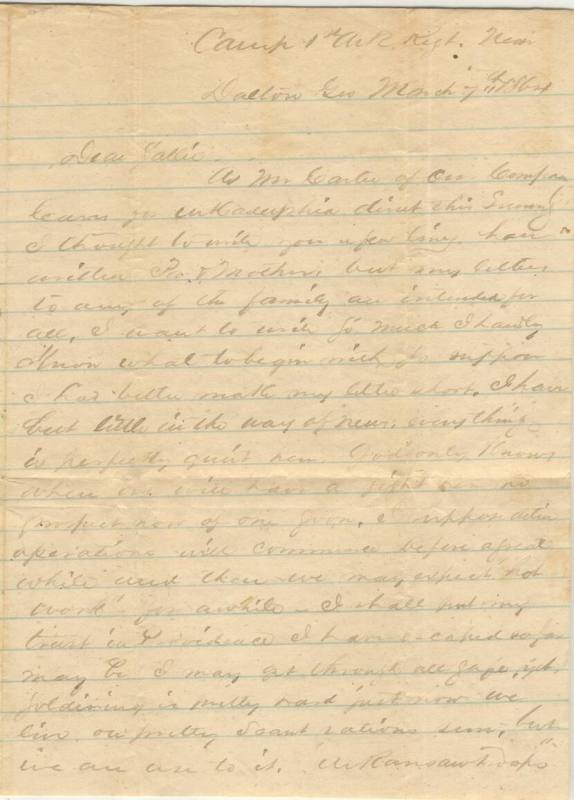 Camp 1st Ark Regt. Near
Dalton Geo March 7th 1864
Dear
As Mr Carter of Our Company
leaves for Arkadelphia direct this Evening
I thought to write you a few lines. have
written Pa & Mother, but my letters
to any of the family are intended for
all, I want to write so much I hardly
Know what to begin with, I suppose
I had better make my letter short. I have
but little in the way of news. everything
is perfectly quiet here. God only Knows
when we will have a fight see no
prospect now of one soon, I suppose active
operations will commence before a great
while and then we may expect hot
work for awhile - I shall put my
trust in Providence I have escaped so far
may be I may get through all safe, yet.
Soldiering is pretty hard just now we
live on pretty scant rations, but
we are use to it. Arkansaw troops